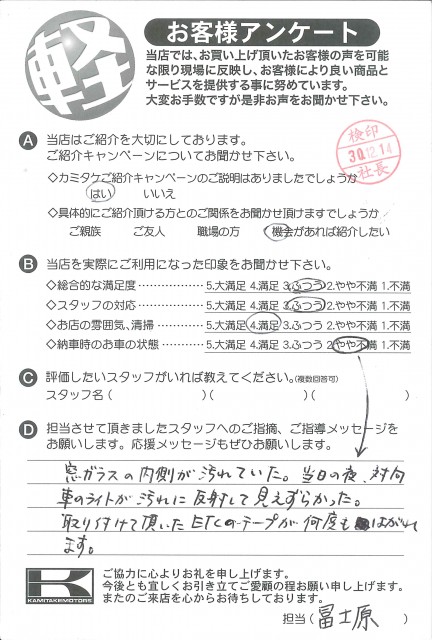 軽
お客様アンケート
当店では、お買い上げ頂いたお客様の声を可能
な限り現場に反映し、お客様により良い商品と
サービスを提供する事に努めています。
大変お手数ですが是非お声をお聞かせ下さい。
検印
30.12.14
社長
A 当店はご紹介を大切にしております。
ご紹介キャンペーンについてお聞かせ下さい。
◇カミタケご紹介キャンペーンのご説明はありましたでしょうか
はい いいえ
◇具体的にご紹介頂ける方とのご関係をお聞かせ頂けますでしょうか
ご親族 ご友人 職場の方 機会があれば紹介したい
B 当店を実際にご利用になった印象をお聞かせ下さい。
◇総合的な満足度 ‥‥‥‥‥‥ 5.大満足 4.満足 3.ふつう 2.やや不満 1.不満
◇スタッフの対応 ‥‥‥‥‥‥ 5.大満足 4.満足 3.ふつう 2.やや不満 1.不満
◇お店の雰囲気、清掃 ‥‥‥‥ 5.大満足 4.満足 3.ふつう 2.やや不満 1.不満
◇納車時のお車の状態 ‥‥‥‥ 5.大満足 4.満足 3.ふつう 2.やや不満 1.不満
C 評価したいスタッフがいれば教えてください。(複数回答可)
スタッフ名 ( )( )( )
D 担当させて頂きましたスタッフへのご指摘、ご指導メッセージを
お願いします。応援メッセージもぜひお願いします。
窓ガラスの内側が汚れていた。当日の夜、対向
車のライトが汚れに反射して見えずらかった。
取り付けて頂いたETCのテープが何度もはがれ
ます。
K
KAMITAKEMOTORS
ご協力に心よりお礼を申し上げます。
今後とも宜しくお引き立てご愛顧の程お願い申し上げます。
またのご来店を心からお待ちしております。
担当 ( 冨士原 )